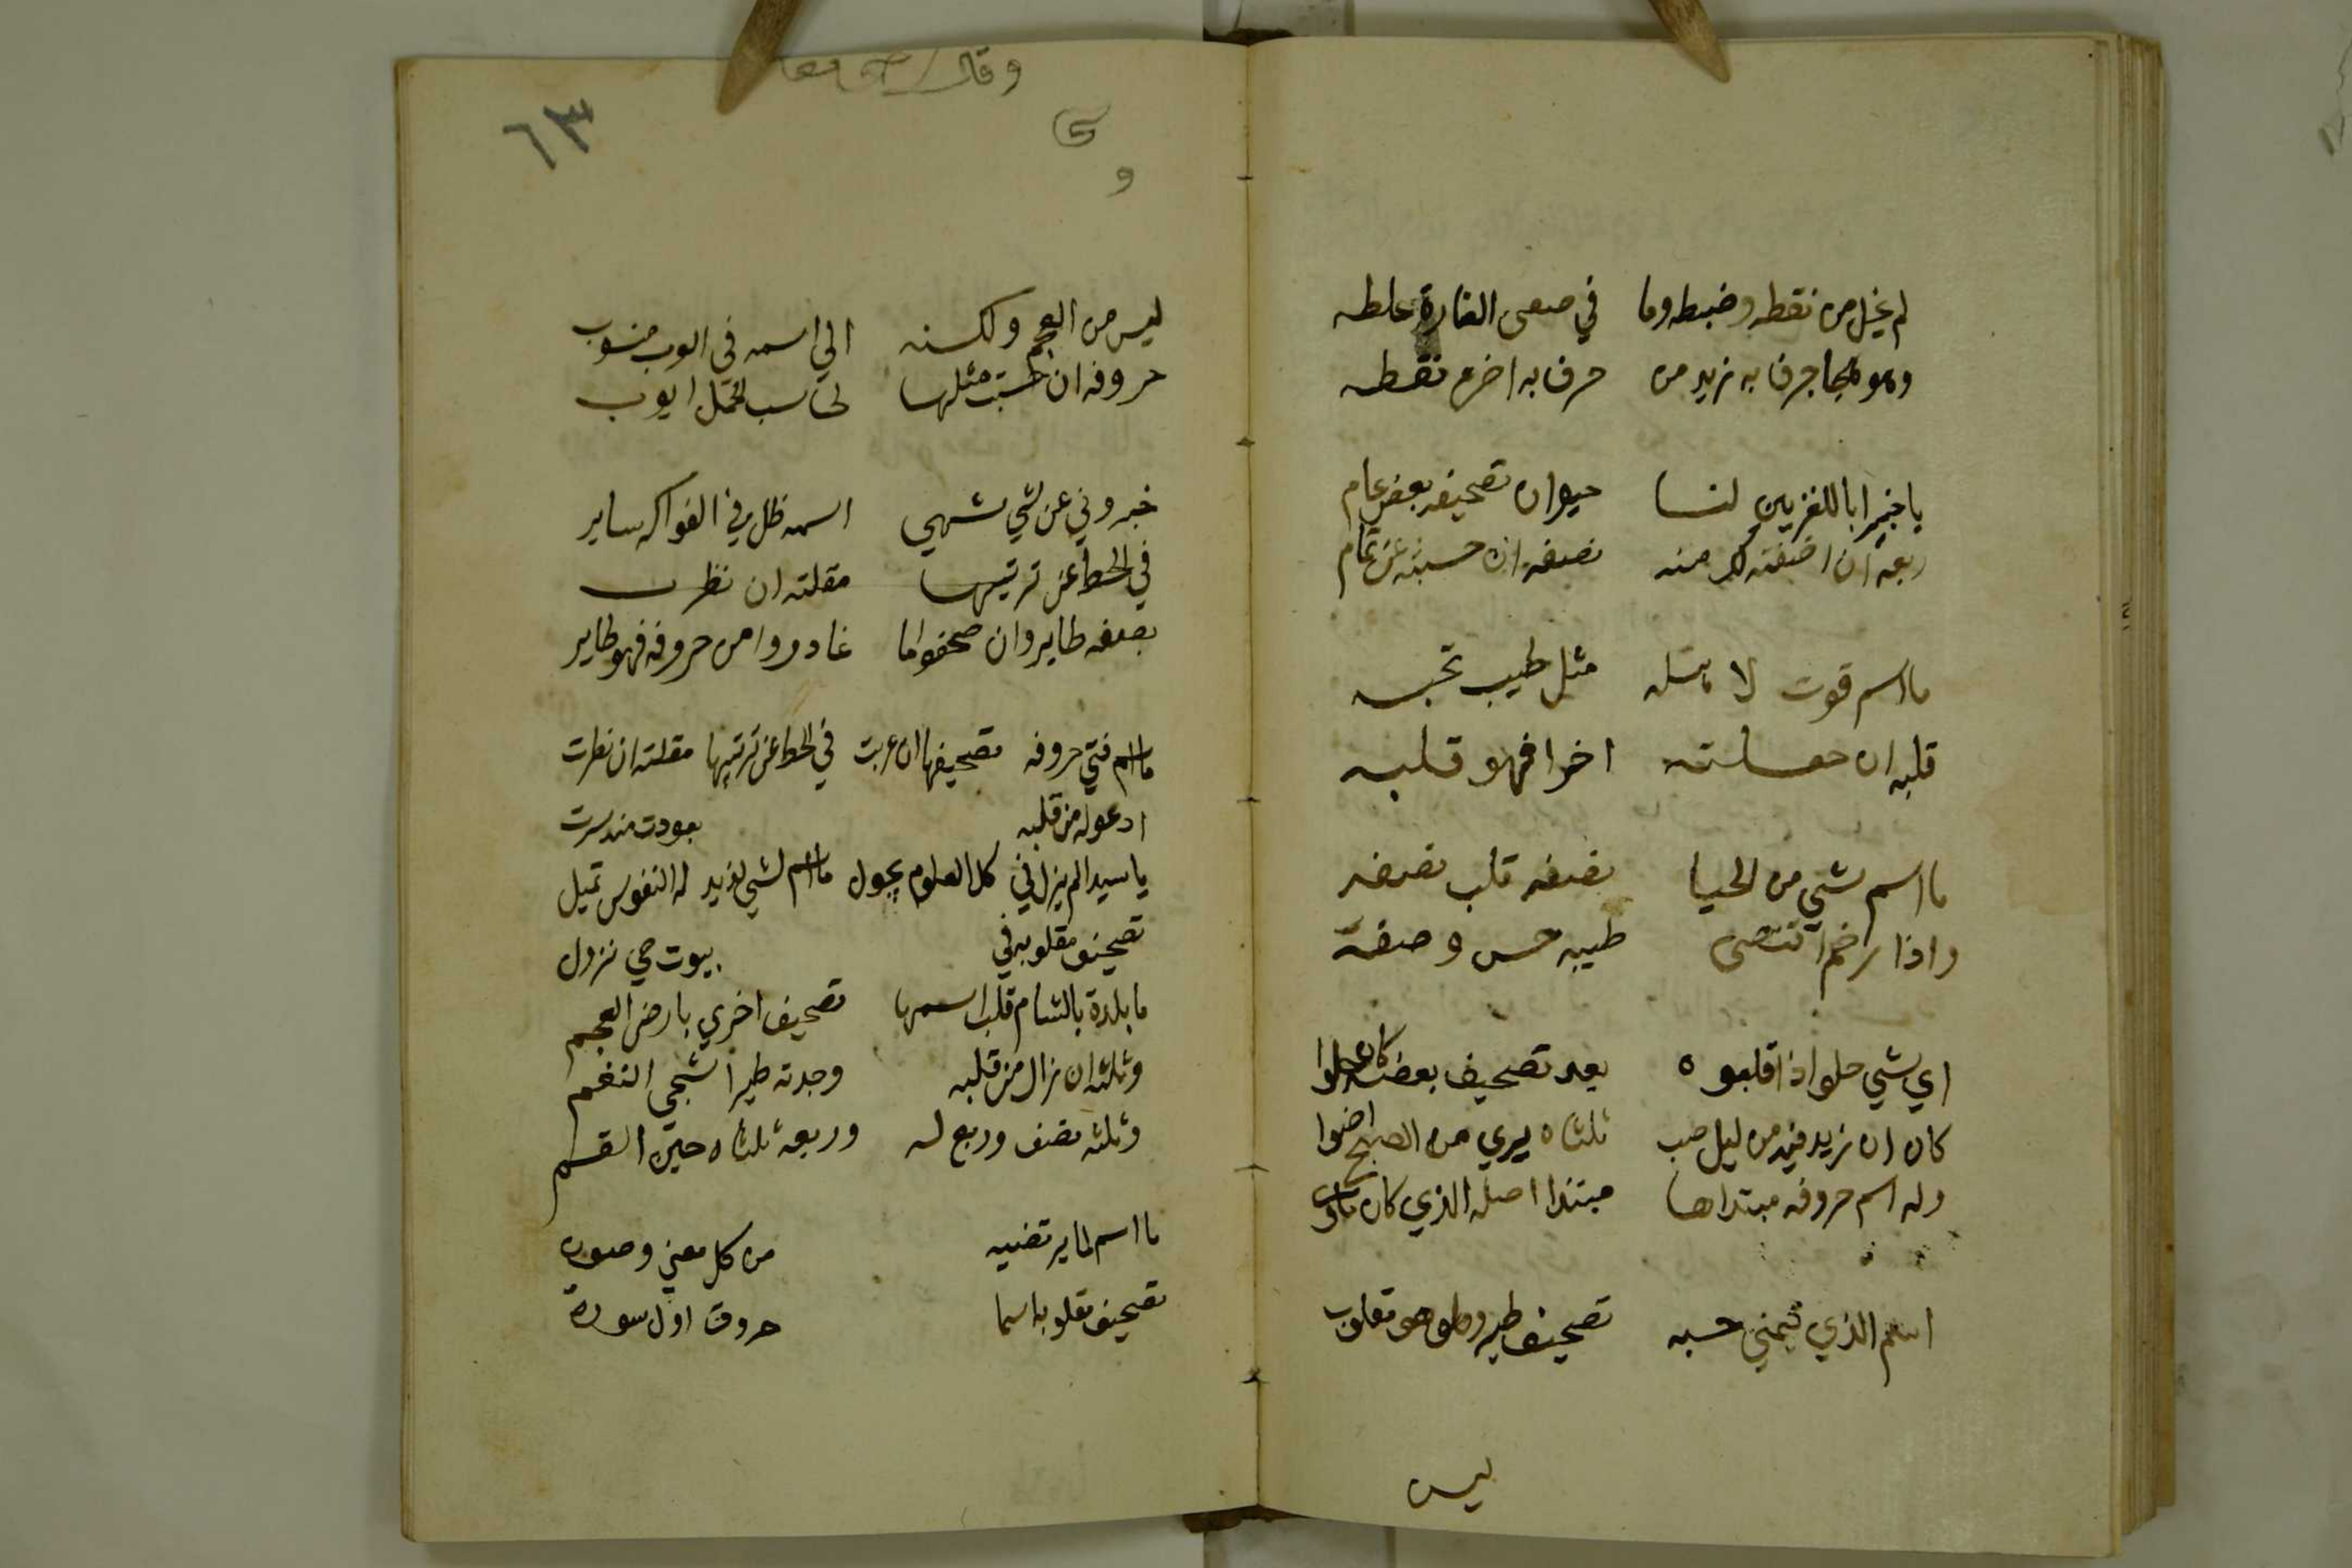 لم يخل من نقطه وضبطه وما في علطه
وهو نقطه حرف به اخرم نقطه
يا خبيرا باللغز بين لنا حيوان تصحيفه بعض عام
ربعه ان اضفته لك منه نصفه ان حسبته عن تمام
ما اسم قوت لا مثل طيب تحبه
قلبه ان اخرا فهو قلبه
ما اسم شي من الحيا نصفه قلب نصفه
واذا رخم اقتضى طيبه حسن وصفه
اي شي حلو اذا قلبوه بعد تصحيف بعضه كان خلوا
كان ان زيد فيه من ليل صب ثلثاه يري من الصبح اضوا
وله اسم حروفه مبتداها مبتدا اصله الذي كان ماوى
اسم الذي تيمني حبه تصحيف طير وهو مقلوب
ليس
وقال
٦٣
و
ليس من العجم ولكنه الي اسمه في العرب منسوب
حروفه ان حسبت مثلها لحاسب الجمل ايوب
خبروني عن شي شهي اسمه ظل في الفواكه ساير
في الخط عن ترتيبها مقلته ان نظرت
نصفه طاير وان صحفوا ما غادروا من حروفه فهو طاير
ما اسم فتي حروفه تصحيفها ان غيرت في الخط عن ترتيبها مقلته ان نظرت
ادعو له من قلبه بعودت منه سرت
يا سيدا لم يزل في كل العلوم يجول ما اسم لشي لذيذ له النفوس تميل
تصحيف مقلوبه في بيوت حي نزول
ما بلدة بالشام قلب اسمها تصحيف اخري بارض العجم
وثلثه ان زال من قلبه وجدته طيرا شجي النغم
وثلثه نصف وربع له وربعه ثلثاه حين انقسم
ما اسم لما يرتضيه من كل معني وصوره
تصحيف مقلوبه اسما حروف اول سورة